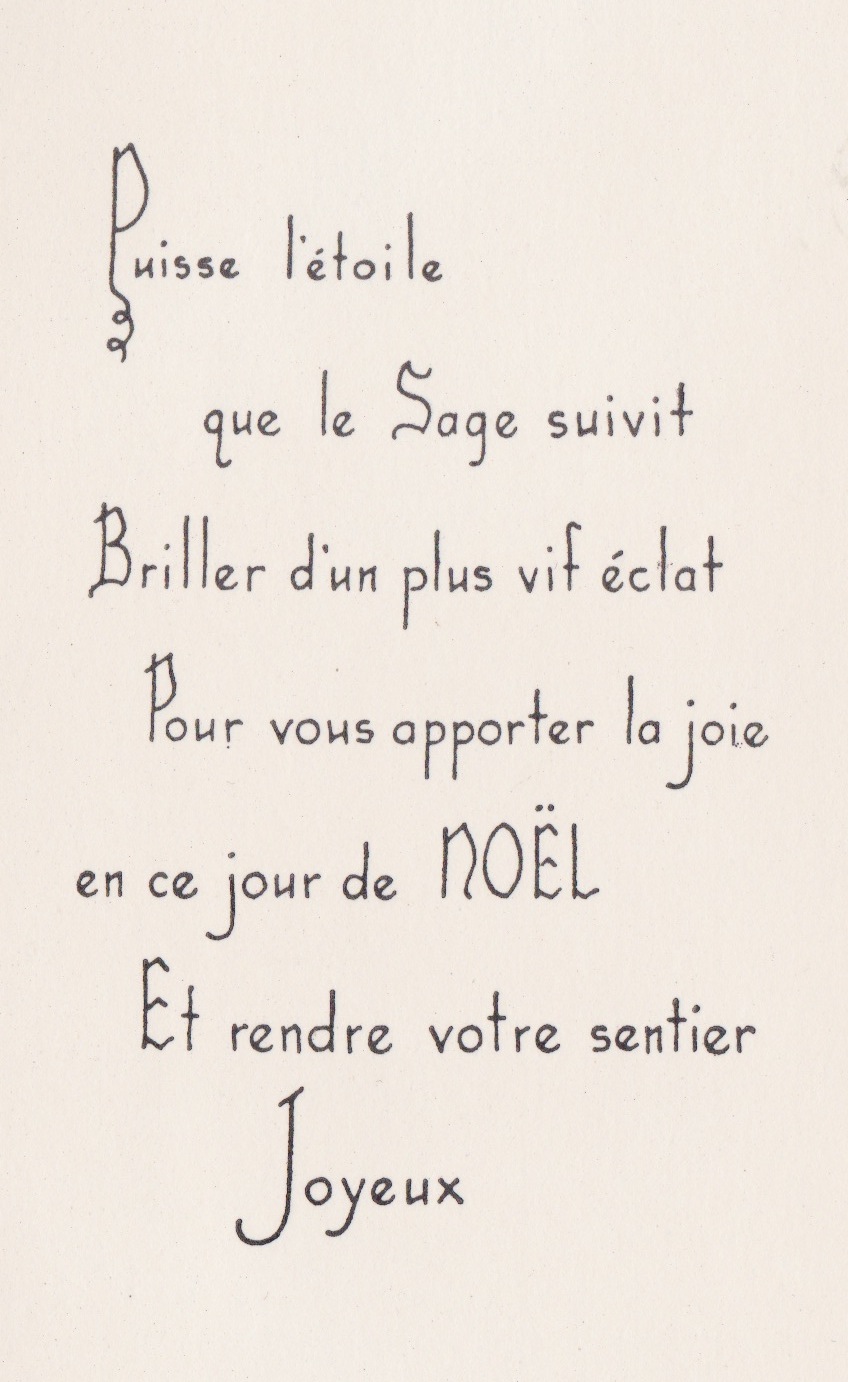 Puisse l'étoile
que le Sage suivit
Briller d'un plus vif éclat
Pour vous apporter la joie
en ce jour de NOËL
Et rendre votre sentier
Joyeux